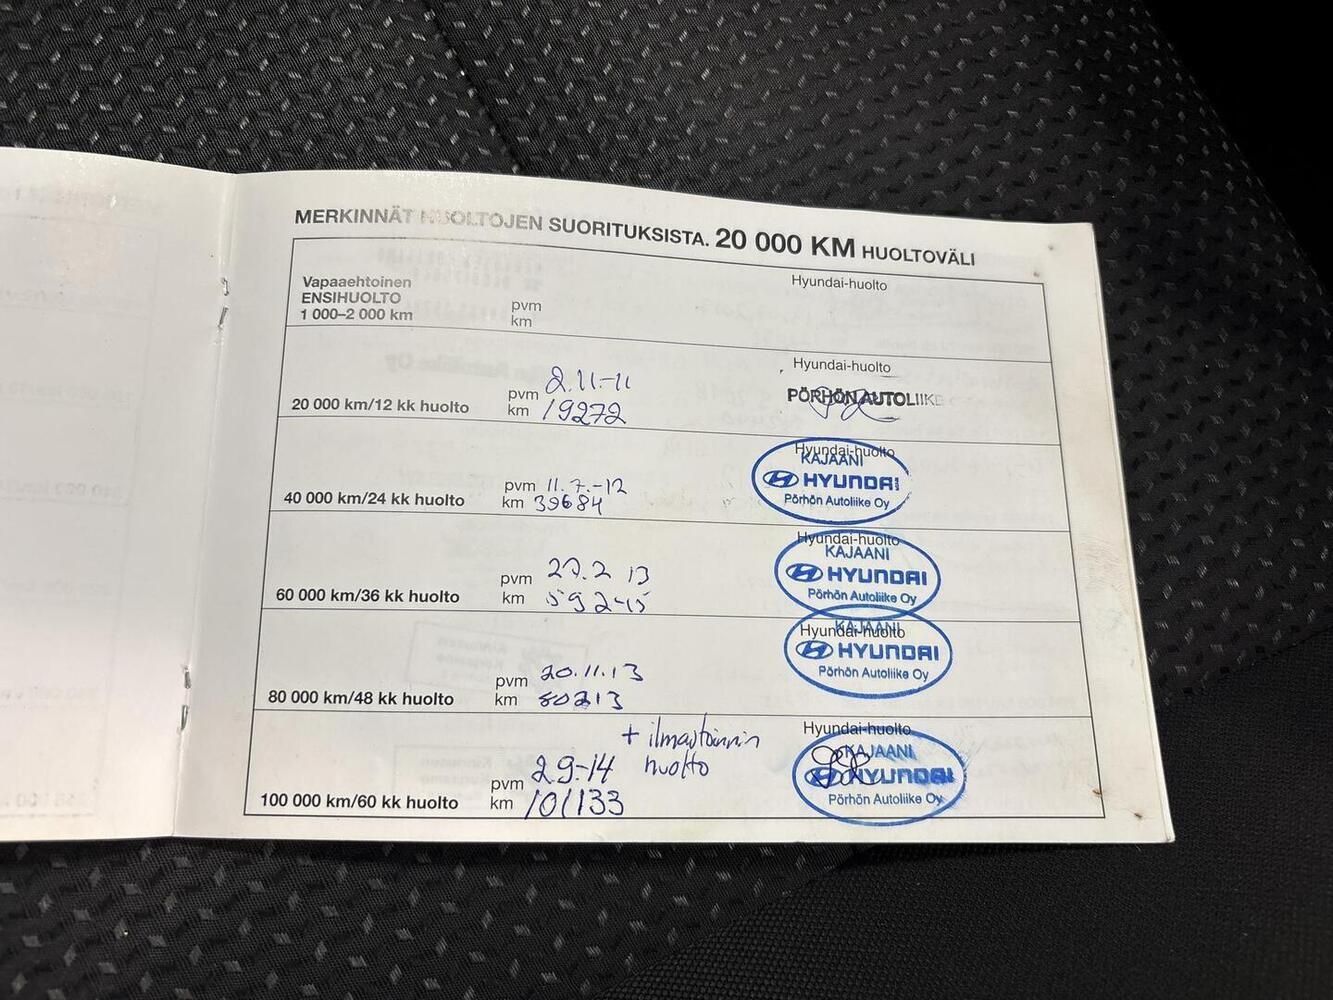 MERKINNÄT HUOLTOJEN SUORITUKSISTA. 20 000 KM HUOLTOVÄLI
Vapaaehtoinen
ENSIHUOLTO
1 000–2 000 km
pvm
km
Hyundai-huolto
20 000 km/12 kk huolto
pvm 2.11.-11
km 19272
Hyundai-huolto
PÖRHÖN AUTOLIIKE
40 000 km/24 kk huolto
pvm 11.7.-12
km 39684
Hyundai-huolto
KAJAANI
HYUNDAI
Pörhön Autoliike Oy
60 000 km/36 kk huolto
pvm 27.2 13
km 59245
Hyundai-huolto
KAJAANI
HYUNDAI
Pörhön Autoliike Oy
80 000 km/48 kk huolto
pvm 20.11.13
km 80213
Hyundai-huolto
KAJAANI
HYUNDAI
Pörhön Autoliike Oy
100 000 km/60 kk huolto
pvm 2.9-14
km 101133
+ ilmastoinnin
huolto
Hyundai-huolto
KAJAANI
HYUNDAI
Pörhön Autoliike Oy